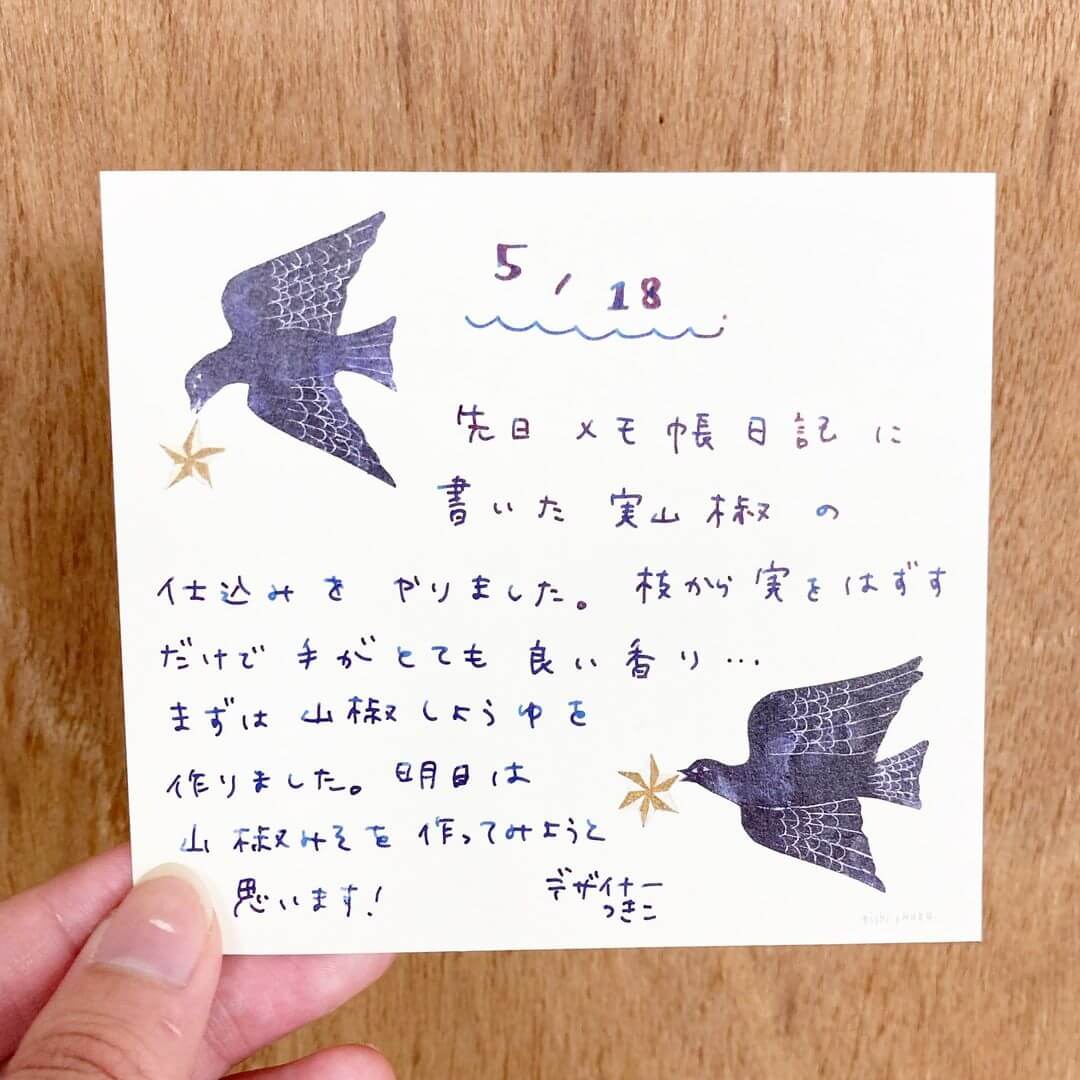 5/18
先日メモ帳日記に
書いた実山椒の
仕込みをやりました。枝から実をはずす
だけで手がとても良い香り…
まずは山椒しょうゆを
作りました。明日は
山椒みそを作ってみようと
思います!
デザイナー
つきこ